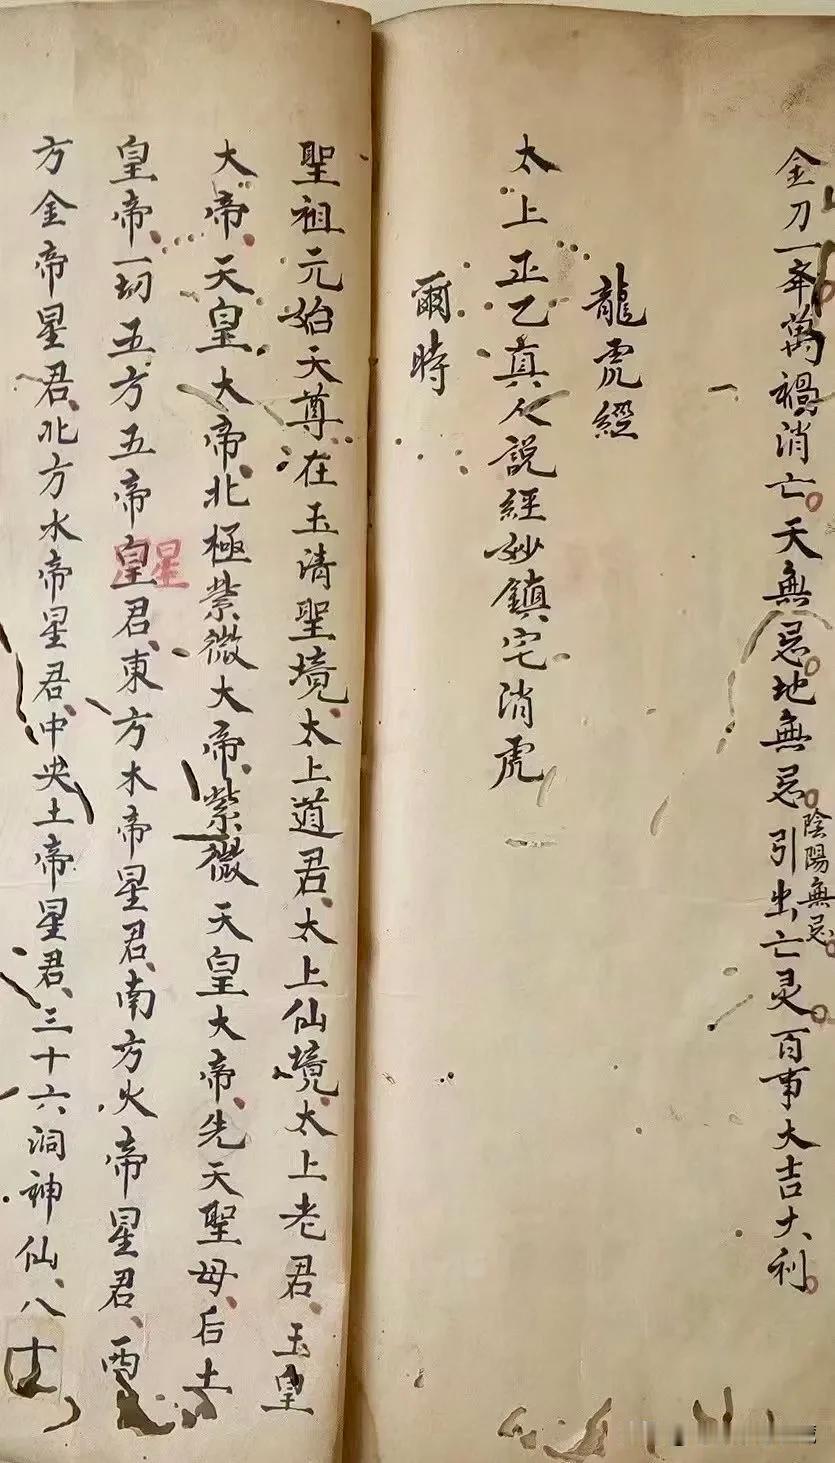 金刀一奔萬禍消亡天無忌地無忌引出亡灵百事大吉大利
陰陽無忌
龍虎經
太上正乙真人説經妙鎮宅消虎
爾時
聖祖元始天尊在玉清聖境太上道君太上仙境太上老君玉皇
大帝天皇大帝北極紫微大帝紫微天皇大帝先天聖母后土
皇帝一切五方五帝皇君東方木帝星君南方火帝星君西
星
方金帝星君北方水帝星君中央土帝星君三十六洞神仙八